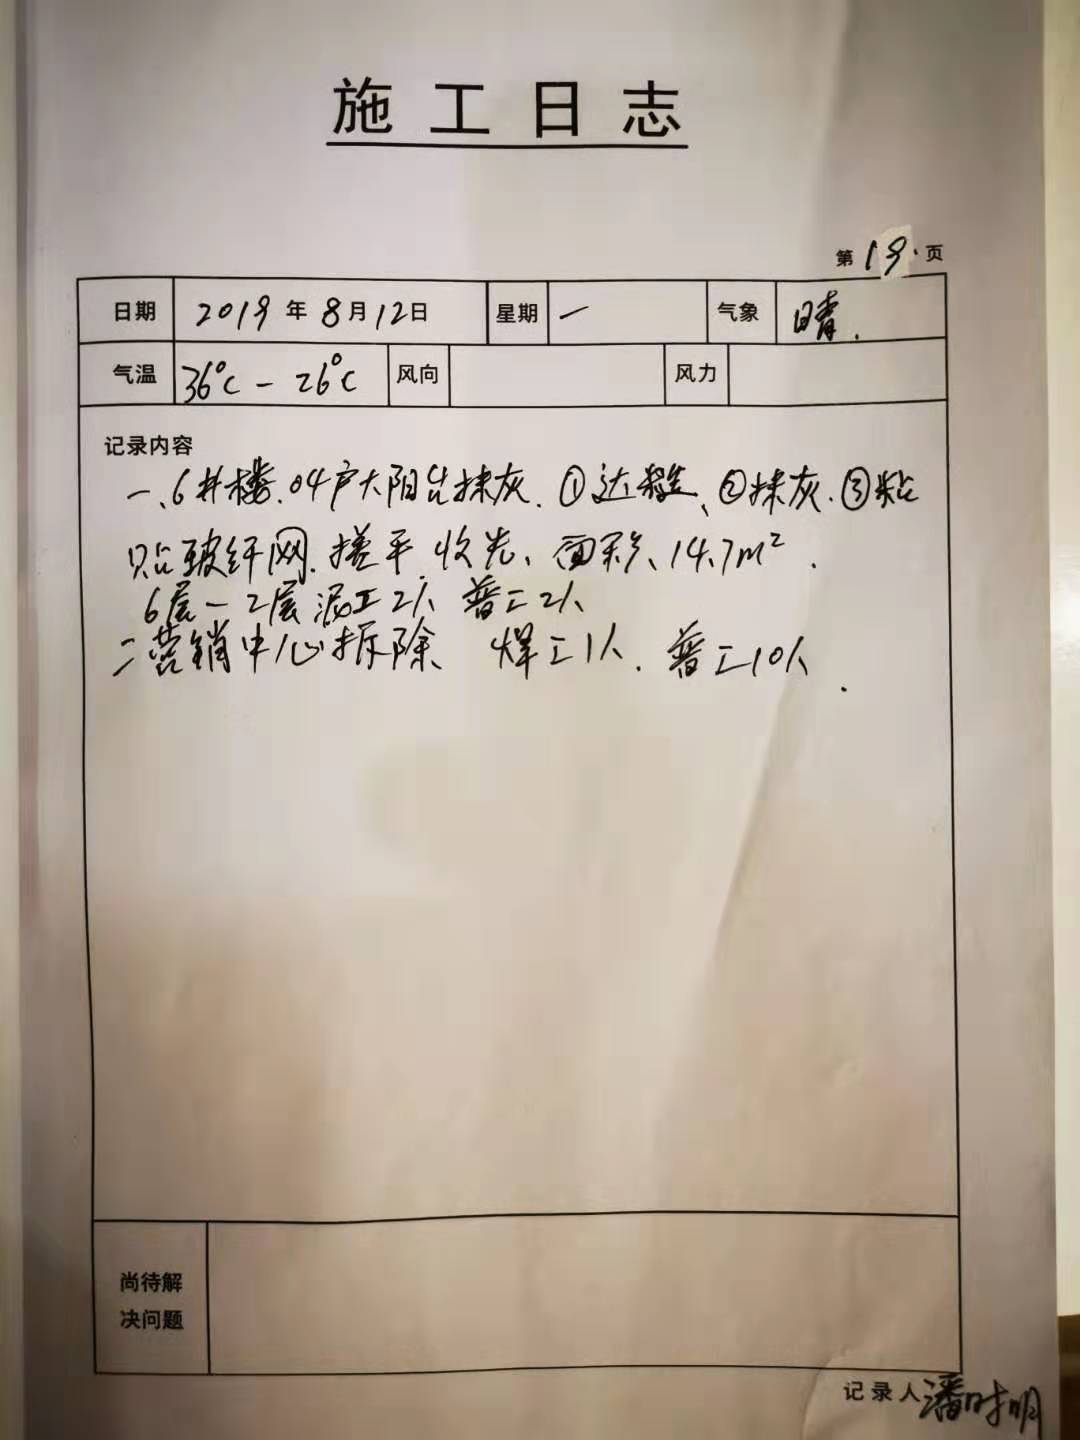 施工日志
第19页
日期 2019年8月12日 星期 一 气象 晴.
气温 36°C - 26°C 风向 风力
记录内容
一、6井楼.04户大阳台抹灰.①达、②抹灰.③粘
贴玻纤网.搓平.收光、面积、14.7m².
6层-2层泥工2人 普工2人
二营销中心拆除 焊工1人.普工10人.
尚待解
决问题
记录人潘时明